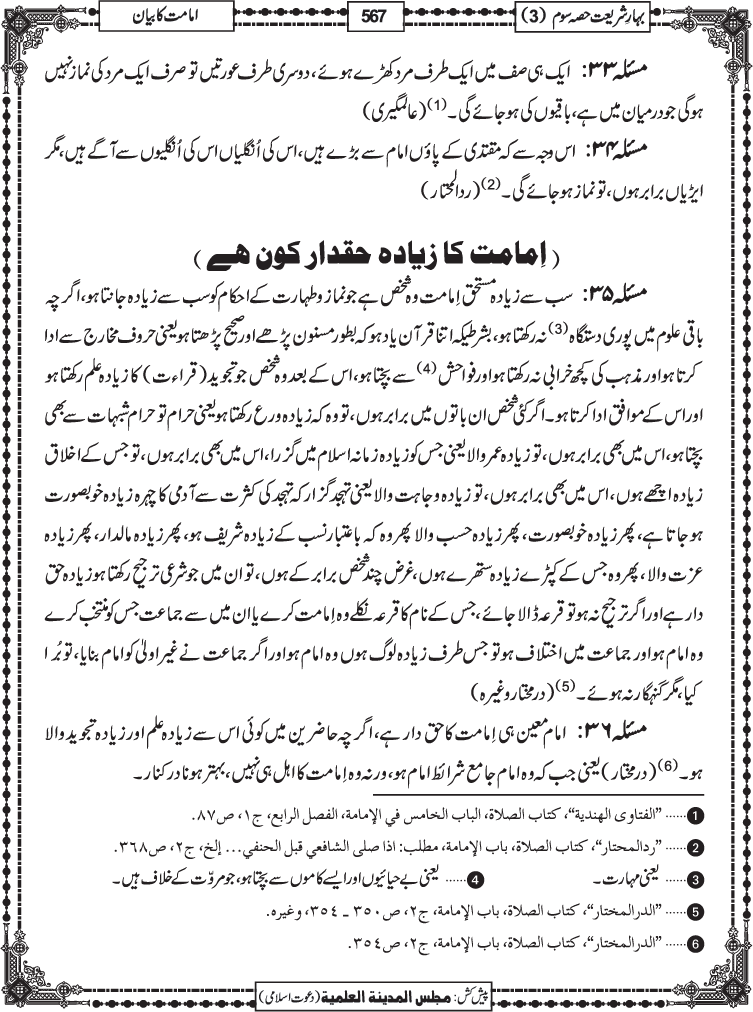 بہارِ شریعت حصہ سوم (3)
567
امامت کا بیان
مسئلہ ۳۳: ایک ہی صف میں ایک طرف مرد کھڑے ہوئے، دوسری طرف عورتیں تو صرف ایک مرد کی نماز نہیں
ہوگی جو درمیان میں ہے، باقیوں کی ہو جائے گی۔ (1) (عالمگیری)
مسئلہ ۳۴: اس وجہ سے کہ مقتدی کے پاؤں امام سے بڑے ہیں، اس کی اُنگلیاں اس کی اُنگلیوں سے آگے ہیں، مگر
ایڑیاں برابر ہوں، تو نماز ہو جائے گی۔ (2) (ردالمحتار)
(اِمامت کا زیادہ حقدار کون ھے)
مسئلہ ۳۵: سب سے زیادہ مستحق اِمامت وہ شخص ہے جو نماز و طہارت کے احکام کو سب سے زیادہ جانتا ہو، اگرچہ
باقی علوم میں پوری دستگاہ (3) نہ رکھتا ہو، بشرطیکہ اتنا قرآن یاد ہو کہ بطور مسنون پڑھے اور صحیح پڑھتا ہو یعنی حروف مخارج سے ادا
کرتا ہو اور مذہب کی کچھ خرابی نہ رکھتا ہو اور فواحش (4) سے بچتا ہو، اس کے بعد وہ شخص جو تجوید (قراءت) کا زیادہ علم رکھتا ہو
اور اس کے موافق ادا کرتا ہو۔ اگر کئی شخص ان باتوں میں برابر ہوں، تو وہ کہ زیادہ ورع رکھتا ہو یعنی حرام تو حرام شبہات سے بھی
بچتا ہو، اس میں بھی برابر ہوں، تو زیادہ عمر والا یعنی جس کو زیادہ زمانہ اسلام میں گزرا، اس میں بھی برابر ہوں، تو جس کے اخلاق
زیادہ اچھے ہوں، اس میں بھی برابر ہوں، تو زیادہ وجاہت والا یعنی تہجد گزار کہ تہجد کی کثرت سے آدمی کا چہرہ زیادہ خوبصورت
ہو جاتا ہے، پھر زیادہ خوبصورت، پھر زیادہ حسب والا پھر وہ کہ باعتبار نسب کے زیادہ شریف ہو، پھر زیادہ مالدار، پھر زیادہ
عزت والا، پھر وہ جس کے کپڑے زیادہ ستھرے ہوں، غرض چند شخص برابر کے ہوں، تو ان میں جو شرعی ترجیح رکھتا ہو زیادہ حق
دار ہے اور اگر ترجیح نہ ہو تو قرعہ ڈالا جائے، جس کے نام کا قرعہ نکلے وہ اِمامت کرے یا ان میں سے جماعت جس کو منتخب کرے
وہ امام ہو اور جماعت میں اختلاف ہو تو جس طرف زیادہ لوگ ہوں وہ امام ہو اور اگر جماعت نے غیر اولیٰ کو امام بنایا، تو بُرا
کیا، مگر گنہگار نہ ہوئے۔ (5) (درمختار وغیرہ)
مسئلہ ۳۶: امام معین ہی اِمامت کا حق دار ہے، اگرچہ حاضرین میں کوئی اس سے زیادہ علم اور زیادہ تجوید والا
ہو۔ (6) (درمختار) یعنی جب کہ وہ امام جامع شرائط امام ہو، ورنہ وہ اِمامت کا اہل ہی نہیں، بہتر ہونا درکنار۔
1 ...... ”الفتاوی الهندیة“، کتاب الصلاة، الباب الخامس في الإمامة، الفصل الرابع، ج١، ص٨٧.
2 ...... ”ردالمحتار“، کتاب الصلاة، باب الإمامة، مطلب: اذا صلی الشافعي قبل الحنفي... إلخ، ج٢، ص٣٦٨.
3 ...... یعنی مہارت۔ 4 ...... یعنی بے حیائیوں اور ایسے کاموں سے بچتا ہو، جو مروّت کے خلاف ہیں۔
5 ...... ”الدرالمختار“، کتاب الصلاة، باب الإمامة، ج٢، ص٣٥٠ ـ ٣٥٤، وغیره.
6 ...... ”الدرالمختار“، کتاب الصلاة، باب الإمامة، ج٢، ص٣٥٤.
پیش کش: مجلس المدینة العلمیة (دعوتِ اسلامی)